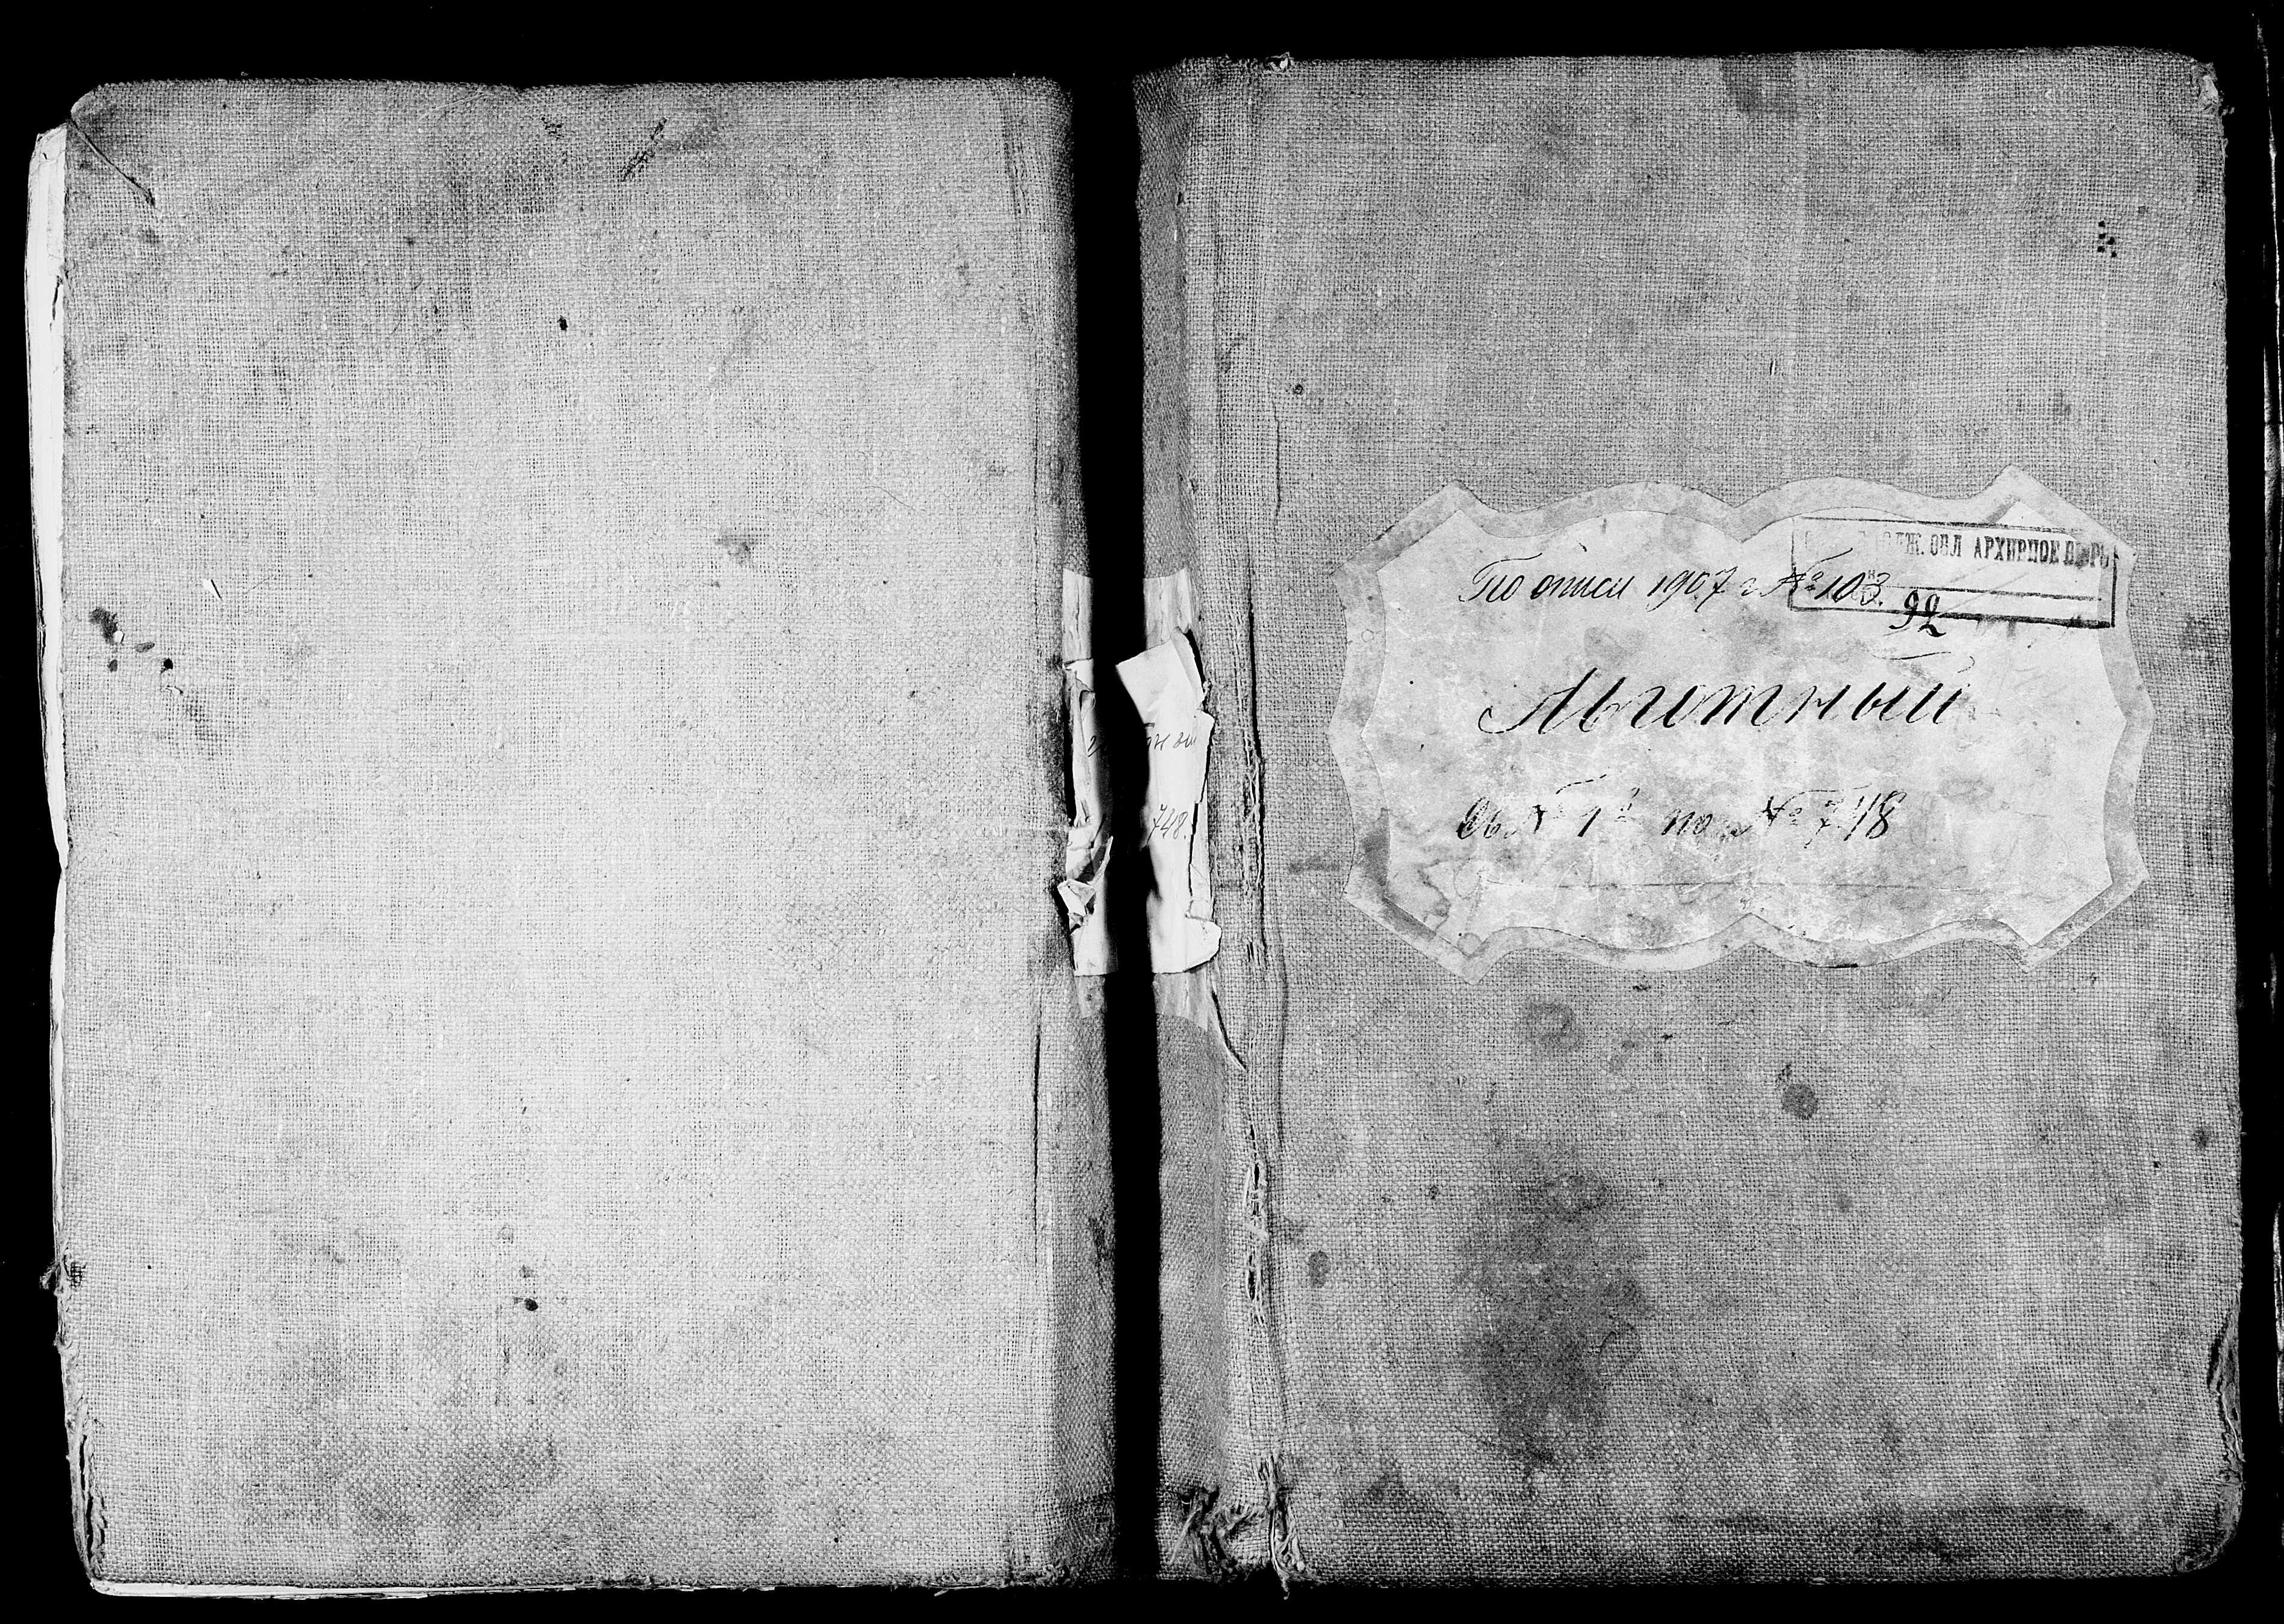 748.
ОБЛ АРХИВНОЕ БЮРО
По описи 1907 г № 103.
92
Льготный
Съ № 1º по № 748